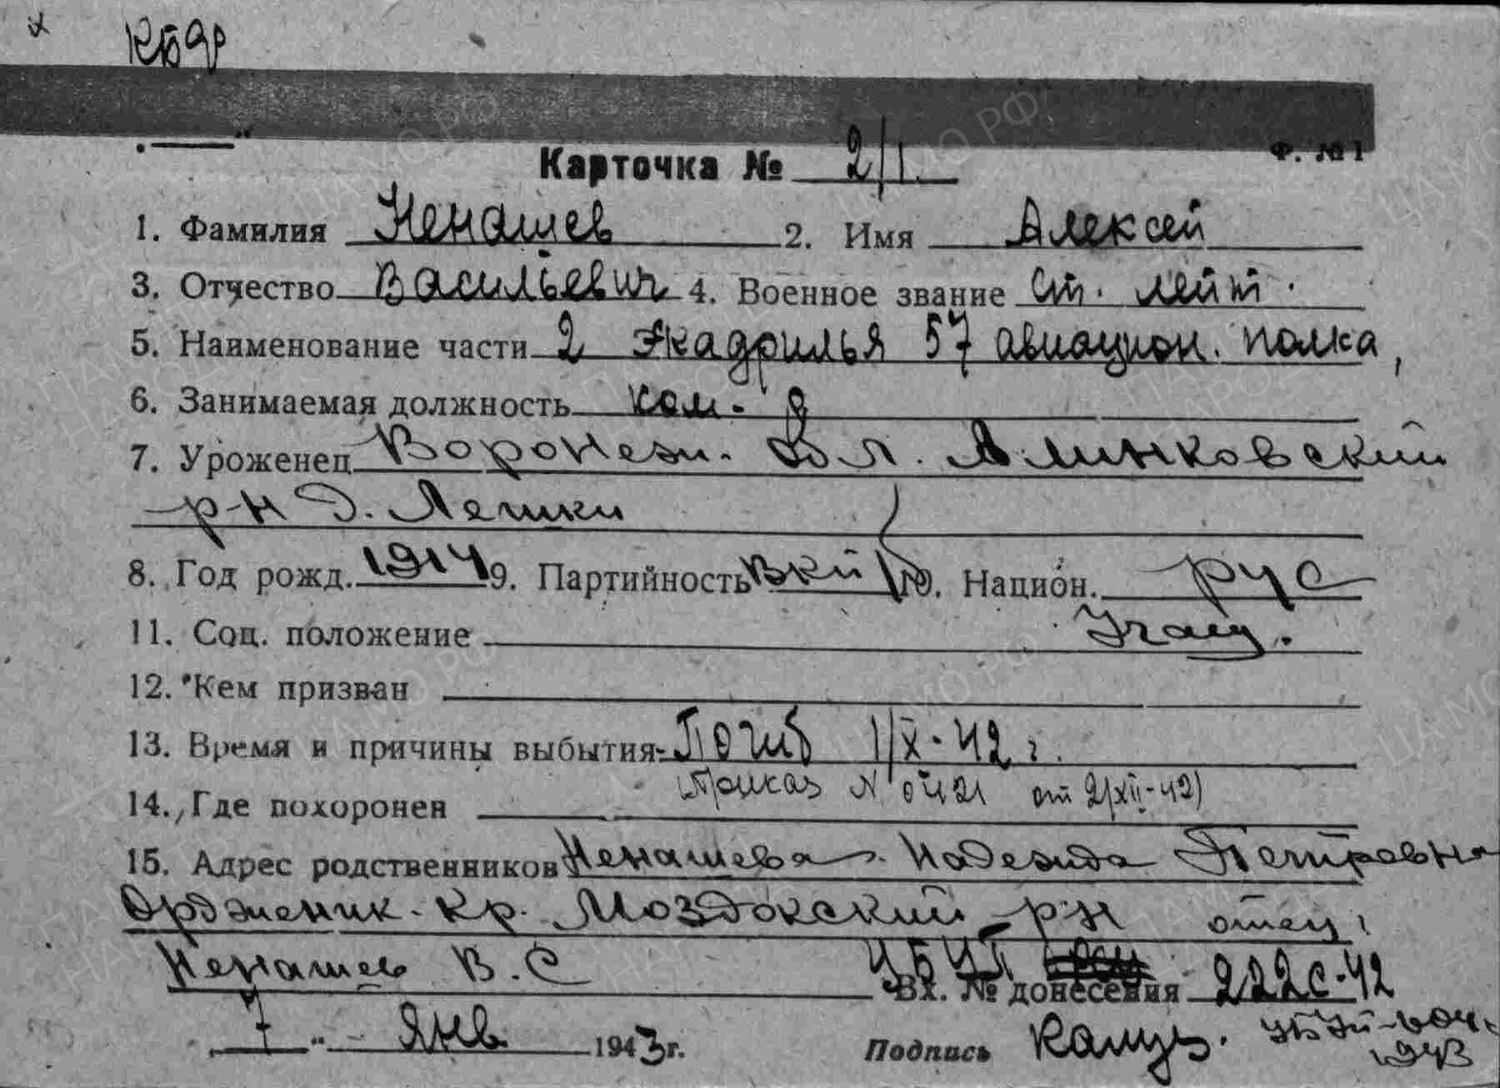 х
КБФ
Ф. № 1
Карточка № 2/1.
1. Фамилия Ненашев 2. Имя Алексей
3. Отчество Васильевич 4. Военное звание ст. лейт.
5. Наименование части 2 Экадрилья 57 авиацион. полка,
6. Занимаемая должность ком-р
7. Уроженец Воронеж. Обл.
р-н Д. Лешки
8. Год рожд. 1914 9. Партийность ВКП/б 10. Национ. рус
11. Соц. положение Учащ.
12. Кем призван
13. Время и причины выбытия Погиб 1/X-42 г.
14. Где похоронен (Приказ N 0421 от 2/XII-42)
15. Адрес родственников Ненашева Надежда Петровна
Ордженик. Кр. Моздокский р-н отец,
Ненашев В. С
Вх. № донесения 222с-42
7 " Янв 1943 г. Подпись